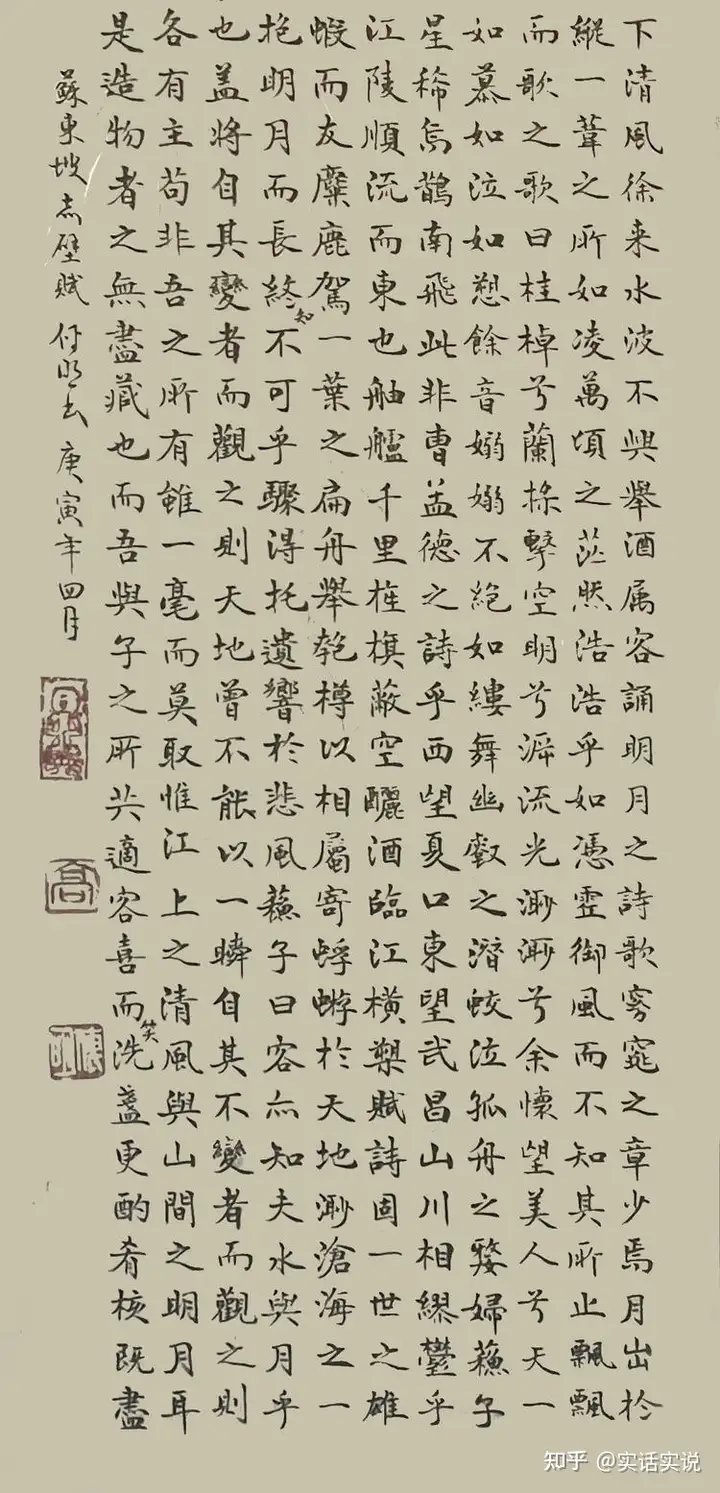 下清風徐来水波不興舉酒属客誦明月之詩歌窈窕之章少焉月出於
縱一葦之所如凌萬頃之茫然浩浩乎如憑虛御風而不知其所止飄飄
而歌之歌曰桂棹兮蘭槳擊空明兮泝流光渺渺兮余懷望美人兮天一
如慕如泣如愬餘音嫋嫋不絕如縷舞幽壑之潛蛟泣孤舟之嫠婦蘇子
星稀烏鵲南飛此非曹孟德之詩乎西望夏口東望武昌山川相繆鬱乎
江陵順流而東也舳艫千里旌旗蔽空釃酒臨江橫槊賦詩固一世之雄
蝦而友麋鹿駕一葉之扁舟舉匏樽以相屬寄蜉蝣於天地渺滄海之一
抱明月而長終知不可乎驟得托遺響於悲風蘇子曰客亦知夫水與月乎
也盖將自其變者而觀之則天地曾不能以一瞬自其不變者而觀之則
各有主苟非吾之所有雖一毫而莫取惟江上之清風與山間之明月耳
是造物者之無盡藏也而吾與子之所共適客喜而笑洗盞更酌肴核既盡
蘇東坡赤壁賦 庚寅年四月
高
知乎 @实话实说